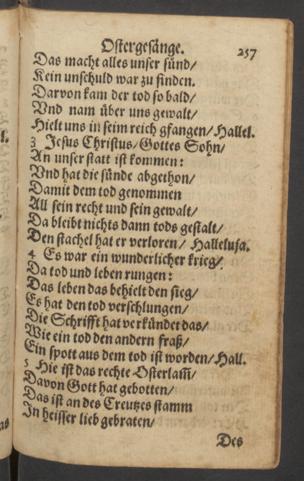 Ostergesänge. 257
Das macht alles unser sünd/
Kein unschuld war zu finden.
Darvon kam der tod so bald/
Vnd nam über uns gewalt/
Hielt uns in seim reich gfangen/ Hallel.
3 Jesus Christus/ Gottes Sohn/
An unser statt ist kommen:
Vnd hat die sünde abgethon/
Damit dem tod genommen
All sein recht und sein gewalt/
Da bleibt nichts dann tods gestalt/
Den stachel hat er verloren/ Halleluja.
4 Es war ein wunderlicher krieg/
Da tod und leben rungen:
Das leben das behielt den sieg/
Es hat den tod verschlungen/
Die Schrifft hat verkündet das/
Wie ein tod den andern fraß/
Ein spott aus dem tod ist worden/ Hall.
5 Hie ist das rechte Osterlam̃/
Davon Gott hat gebotten/
Das ist an des Creutzes stamm
In heisser lieb gebraten/
Des